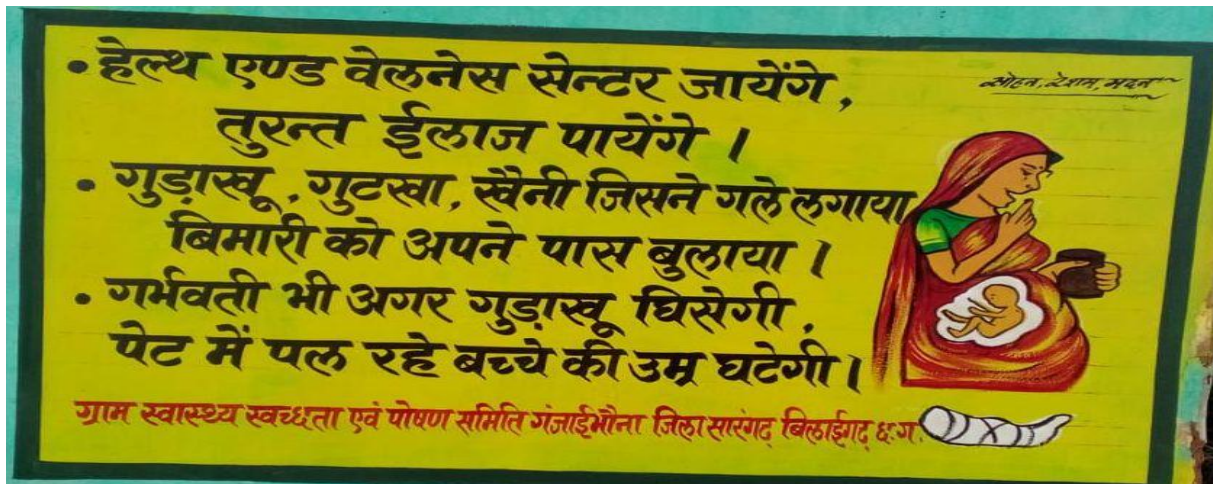 • हेल्थ एण्ड वेलनेस सेन्टर जायेंगे,
सोहन, रेशम, मदन
तुरन्त ईलाज पायेंगे ।
• गुड़ाखू, गुटखा, खैनी जिसने गले लगाया
बिमारी को अपने पास बुलाया ।
• गर्भवती भी अगर गुड़ाखू घिसेगी,
पेट में पल रहे बच्चे की उम्र घटेगी।
ग्राम स्वास्थ्य स्वच्छता एवं पोषण समिति गंजाईभौना जिला सारंगढ़ बिलाईगढ़ छ.ग.